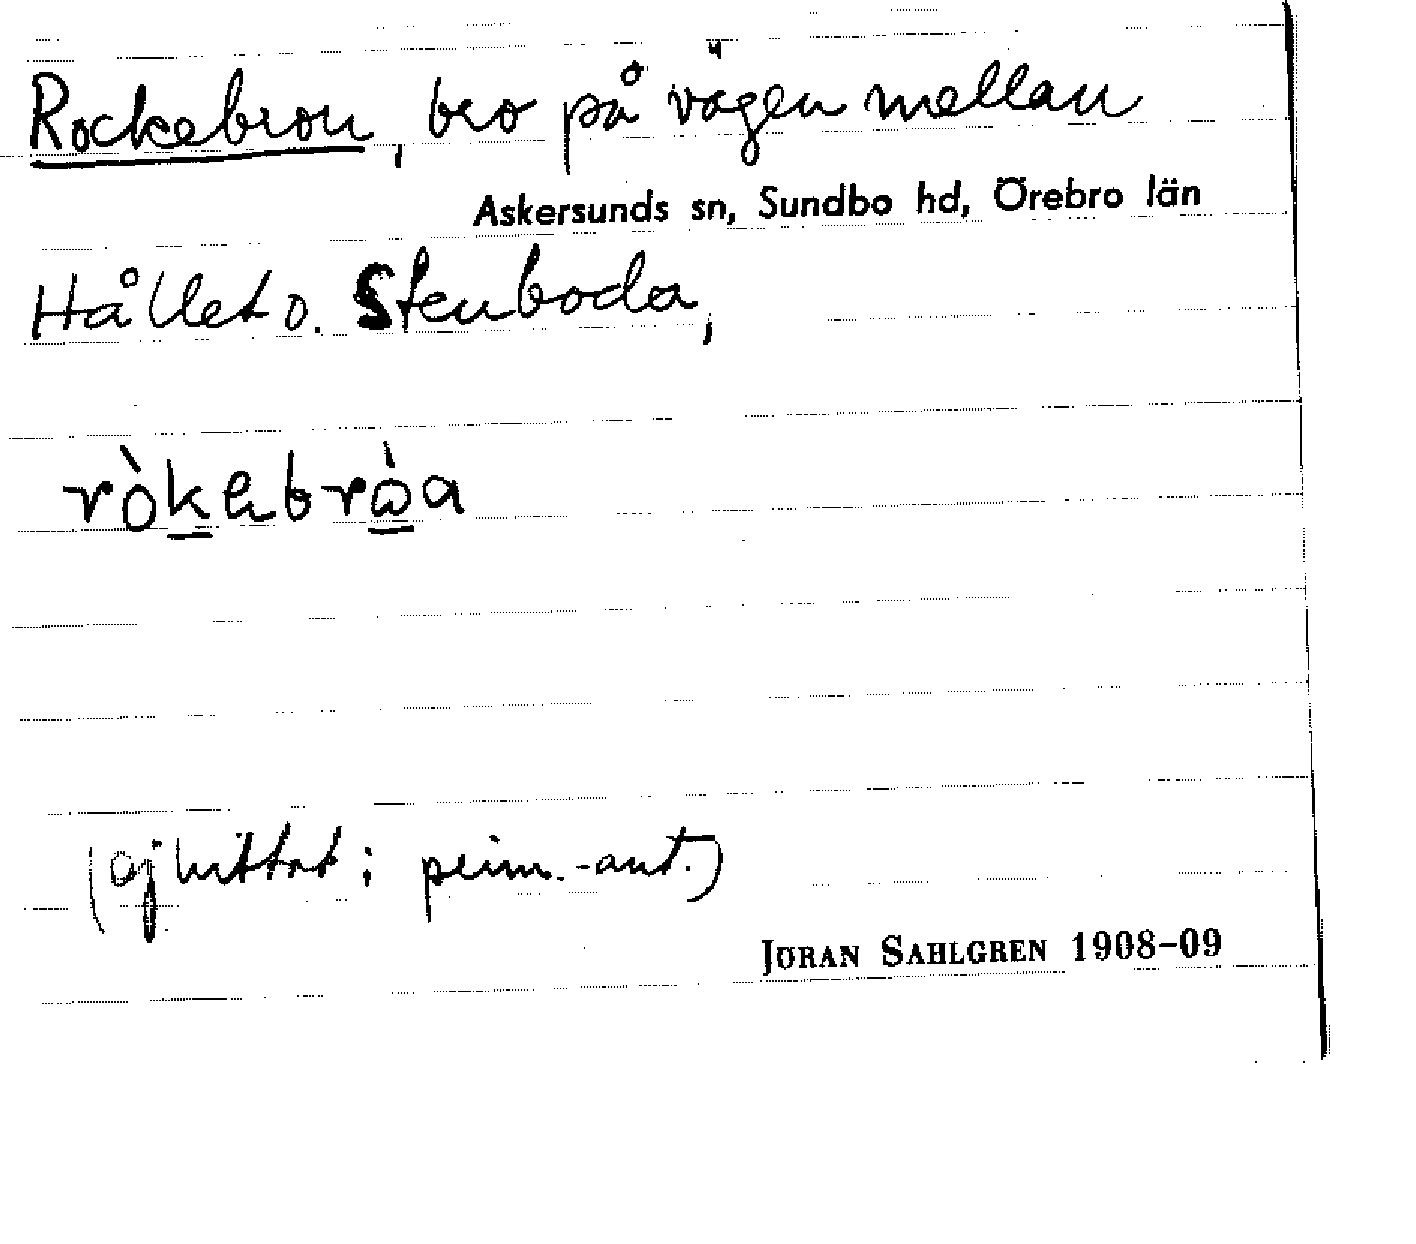 Rockebron, bro på vägen mellan
Askersunds sn, Sundbo hd, Örebro län
Hållet o. Stenboda,
ròkabròa
(ej hittat i prim.-ant.)
JÖRAN SAHLGREN 1908–09